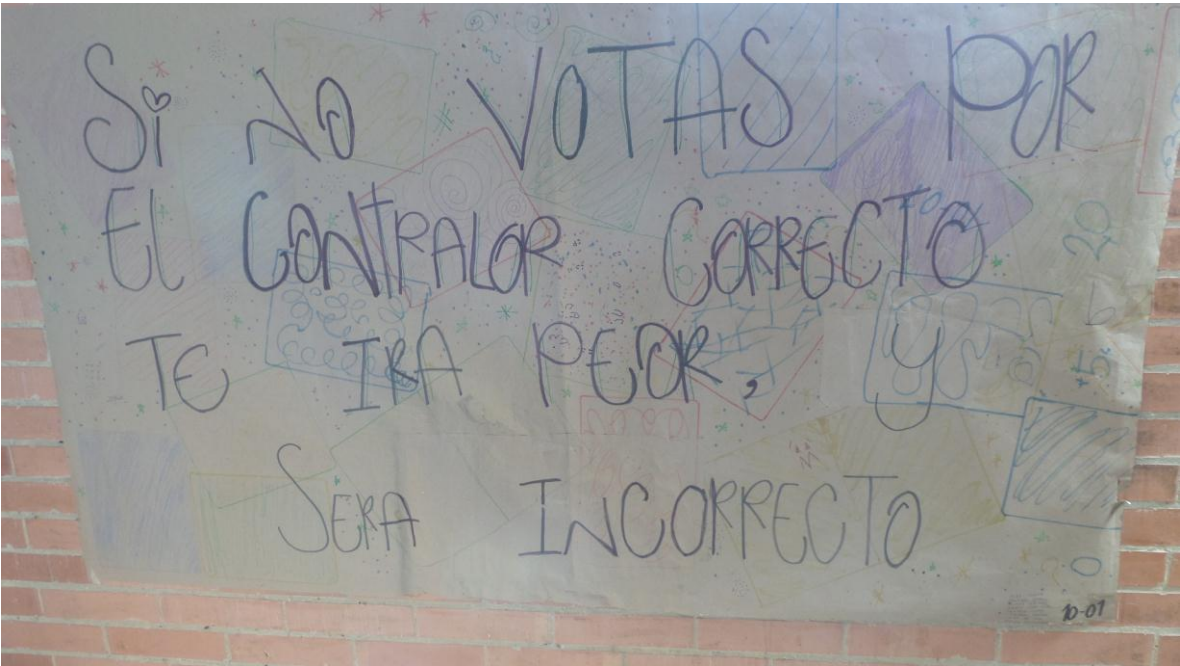 Si NO VOTAS POR
El CONTRALOR CORRECTO
TE IRA PEOR, y
SERA INCORRECTO
10-01